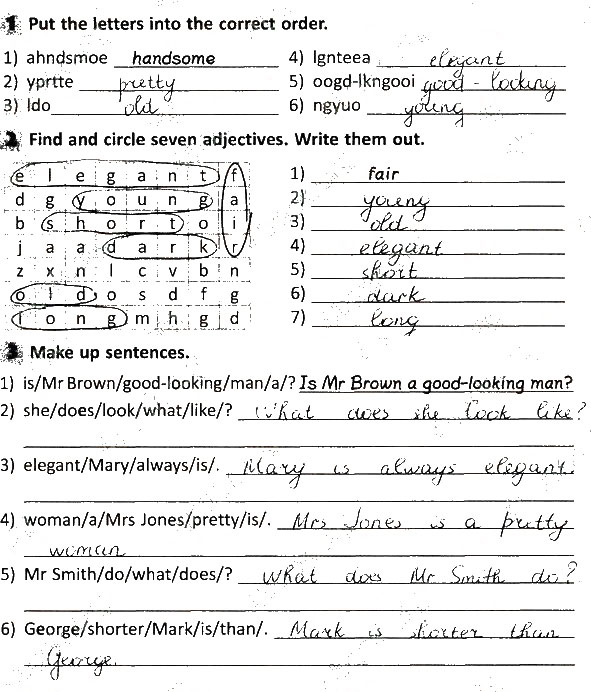 1 Put the letters into the correct order.
1) ahndsmoe handsome 4) lgnteea elegant
2) yprtte pretty 5) oogd-lkngooi good - looking
3) ldo old 6) ngyuo young
2 Find and circle seven adjectives. Write them out.
e l e g a n t f 1) fair
d g y o u n g a 2) young
b s h o r t o i 3) old
j a a d a r k r 4) elegant
z x n l c v b n 5) short
o l d o s d f g 6) dark
l o n g m h g d 7) long
3 Make up sentences.
1) is/Mr Brown/good-looking/man/a/? Is Mr Brown a good-looking man?
2) she/does/look/what/like/? What does she look like?
3) elegant/Mary/always/is/. Mary is always elegant.
4) woman/a/Mrs Jones/pretty/is/. Mrs Jones is a pretty
woman
5) Mr Smith/do/what/does/? What does Mr Smith do?
6) George/shorter/Mark/is/than/. Mark is shorter than
George.